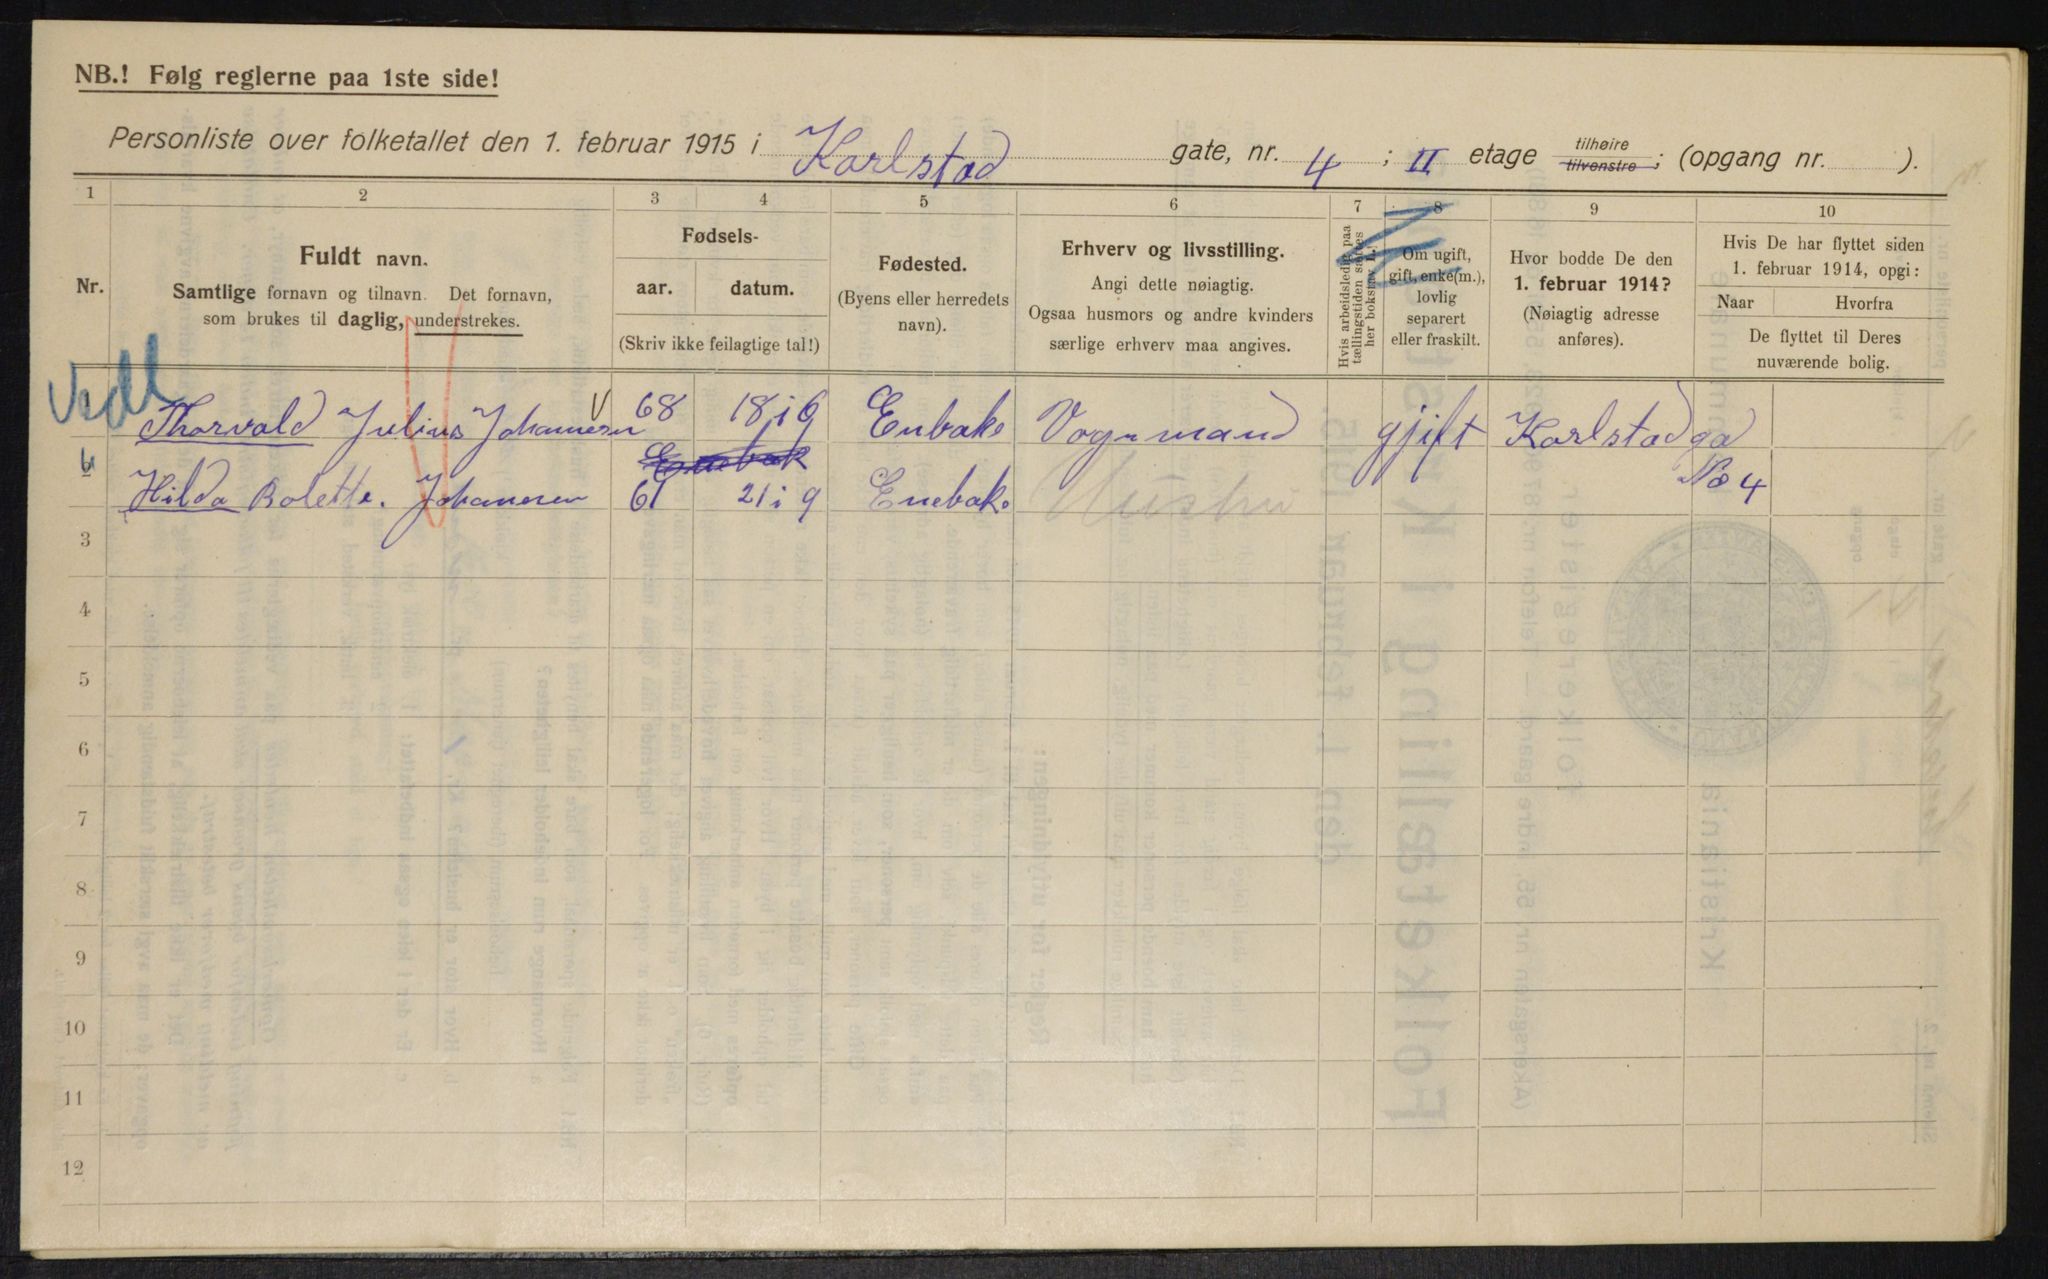 NB.! Følg reglerne paa 1ste side!
Personliste over folketallet den 1. februar 1915 i Karlstad gate, nr. 4 ; II etage tilhøire tilvenstre; (opgang nr. ).
1 2 3 4 5 6 7 8 9 10
Nr.
Fuldt navn.
Samtlige fornavn og tilnavn. Det fornavn,
som brukes til daglig, understrekes.
Fødsels-
aar. datum.
(Skriv ikke feilagtige tal!)
Fødested.
(Byens eller herredets
navn).
Erhverv og livsstilling.
Angi dette nøiagtig.
Ogsaa husmors og andre kvinders
særlige erhverv maa angives.
Hvis arbeidsledig paa
tællingstiden sættes
her bokstav L.
Om ugift,
gift, enke(m.),
lovlig
separert
eller fraskilt.
Hvor bodde De den
1. februar 1914?
(Nøiagtig adresse
anføres).
Hvis De har flyttet siden
1. februar 1914, opgi:
Naar Hvorfra
De flyttet til Deres
nuværende bolig.
Thorvald Julius Johannesen 68 18 i 9 Enbak Vognmand gjift Karlstad ga
Enebak
Hilda Bolette. Johannesen 61 21 i 9 Enebak. Hustru No 4
3
4
5
6
7
8
9
10
11
12